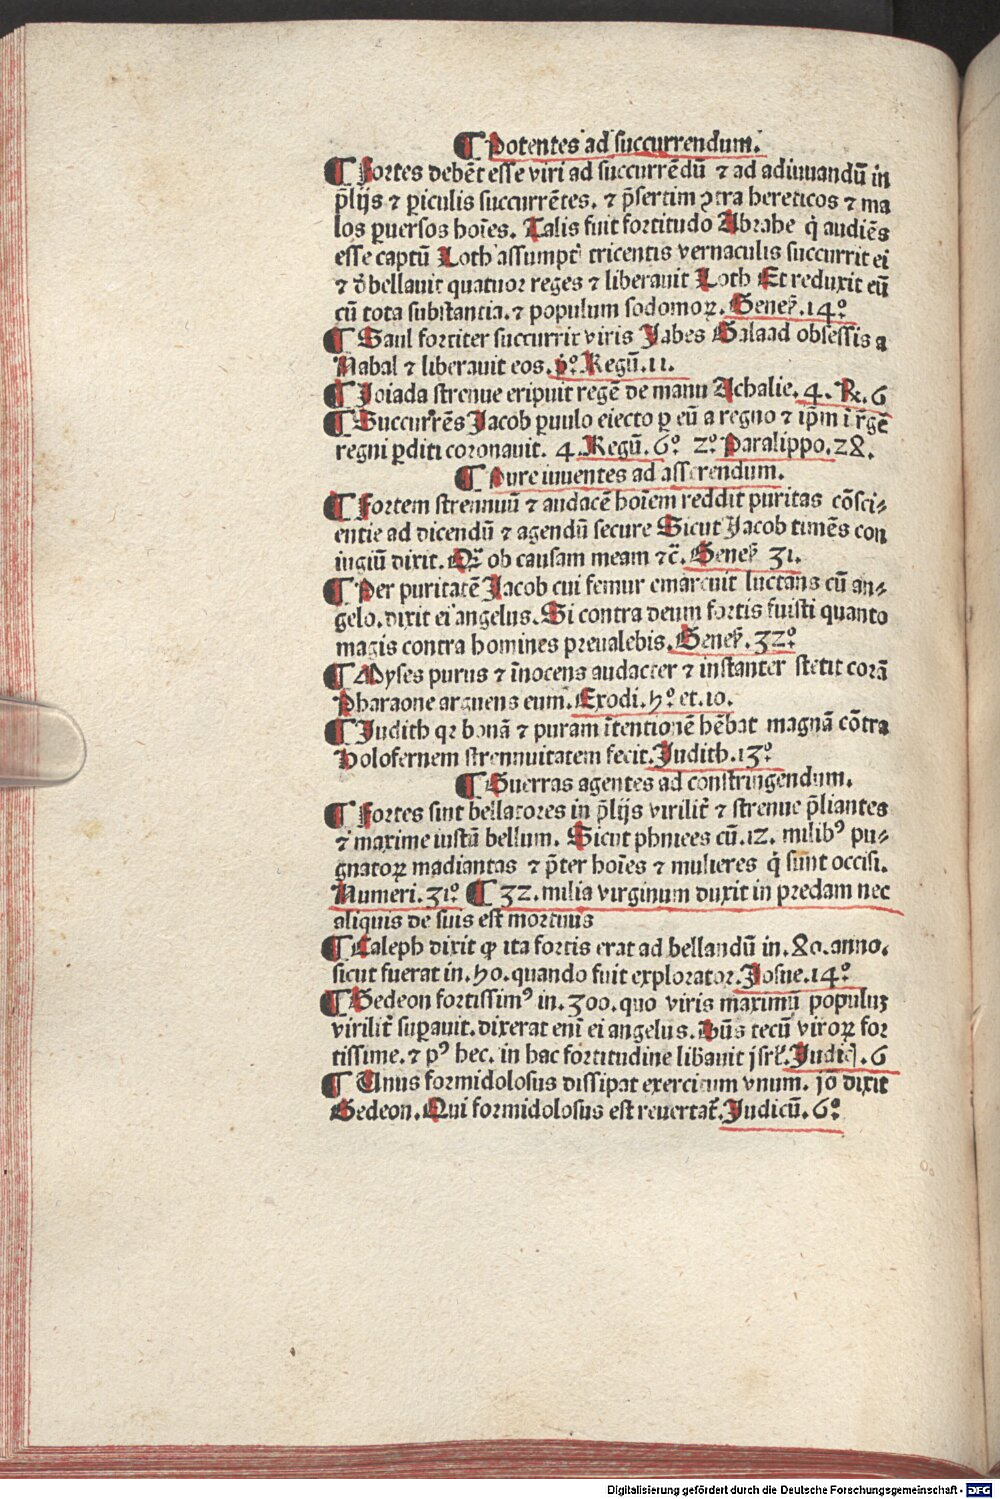 ¶ Potentes ad succurrendum.
¶ Fortes debēt esse viri ad succurrēdū ⁊ ad adiuuandū in
p̄lijs ⁊ ꝑiculis succurrētes. ⁊ p̄sertim ꝯtra hereticos ⁊ ma
los ꝑuersos hoīes. Talis fuit fortitudo Abrahe q̇ audiēs
esse captū Loth assumptꝭ tricentis vernaculis succurrit ei
⁊ d̄bellauit quatuor reges ⁊ liberauit Loth Et reduxit eū
cū tota substantia. ⁊ populum sodomoꝝ. Geneẜ. 14°
¶ Saul fortiter succurrir viris Jabes Galaad obsessis a
Nabal ⁊ liberauit eos. p°. Regū. 11.
¶ Joiada strenue eripuit regē de manu Athalie. 4. R. 6
¶ Succurrēs Jacob puulo eiecto ꝑ eū a regno ⁊ ip̄m ī r̄gē
regni ꝑditi coronauit. 4. Regū. 6° 2° Paralippo. 28.
¶ Pure iuuentes ad asserendum.
¶ Fortem strennuū ⁊ audacē hoīem reddit puritas cōsci⸗
entie ad dicendū ⁊ agendū secure Sicut Jacob timēs con
iugiū dixit. Qꝛ ob causam meam ⁊c̄. Geneẜ 31.
¶ Per puritatē Jacob cui femur emarcuit luctans cū an⸗
gelo. dixit ei angelus. Si contra deum fortis fuisti quanto
magis contra homines preualebis. Geneẜ. 32°
¶ Moyses purus ⁊ īnocens audacter ⁊ instanter stetit corā
Pharaone arguens eum. Exodi. 7° et. 10.
¶ Judith qꝛ bonā ⁊ puram ītentionē hēbat magnā cōtra
Holofernem strennuitatem fecit. Judith. 13°
¶ Guerras agentes ad constringendum.
¶ Fortes sint bellatores in p̄lijs virilit̄ ⁊ strenue p̄liantes
⁊ maxime iustā bellum. Sicut phinees cū. 12. milibꝰ pu⸗
gnatoꝝ madiantas ⁊ p̄ter hoīes ⁊ mulieres q̇ sunt occisi.
Numeri. 31° ¶ 32. milia virginum duxit in predam nec
aliquis de suis est mortuus
¶ Caleph dixit ꝙ ita fortis erat ad bellandū in. 80. anno.
sicut fuerat in. 70. quando fuit explorator. Josue. 14°
¶ Gedeon fortissimꝰ in. 300. quo viris maximū populuꝫ
virilit̄ suꝑauit. dixerat enī ei angelus. Dn̄s tecū viroꝝ for
tissime. ⁊ pꝰ hec. in hac fortitudine lib̄auit jsrl̄. Judiꝯ. 6
¶ Unus formidolosus dissipat exercitum vnum. jō dixit
Gedeon. Qui formidolosus est reuertat᷑. Judicū. 6°
Digitalisierung gefördert durch die Deutsche Forschungsgemeinschaft - DFG